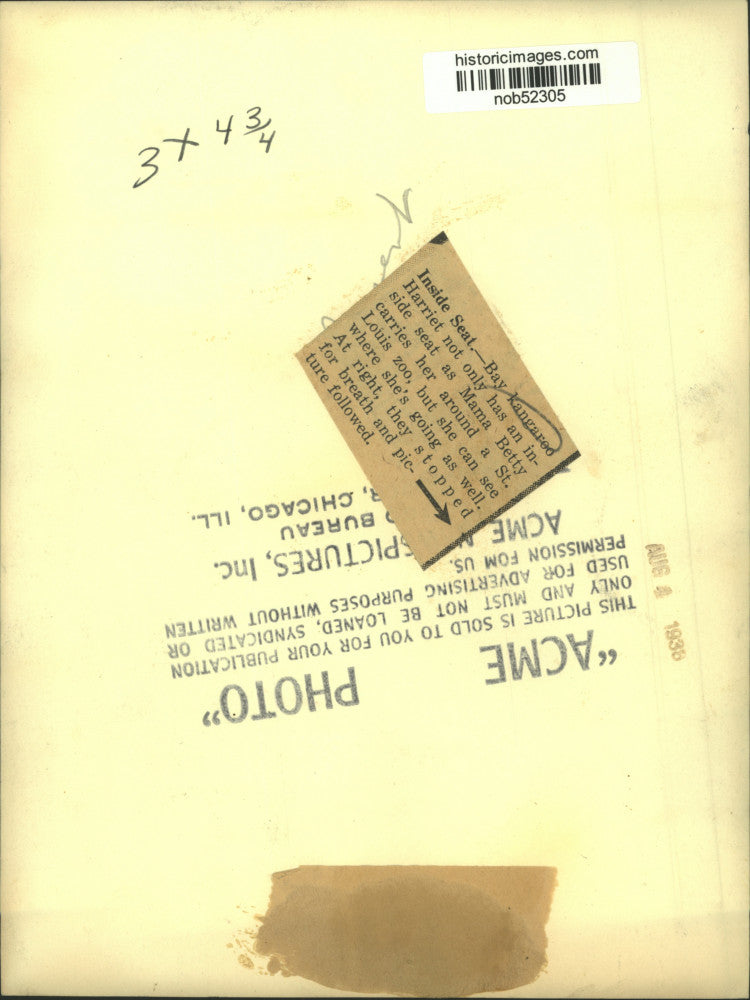 historicimages.com
nob52305
3 x 4 3/4
Inside Seat.—Bay kangaroo
Harriet not only has an in-
side seat as Mama Betty
carries her around a St.
Louis zoo, but she can see
where she's going as well.
At right, they stopped
for breath and pic-
ture followed.
"ACME PHOTO"
THIS PICTURE IS SOLD TO YOU FOR YOUR PUBLICATION
ONLY AND MUST NOT BE LOANED, SYNDICATED OR
USED FOR ADVERTISING PURPOSES WITHOUT WRITTEN
PERMISSION FOM US.
ACME
SPICTURES, Inc.
BUREAU
CHICAGO, ILL.
AUG 4